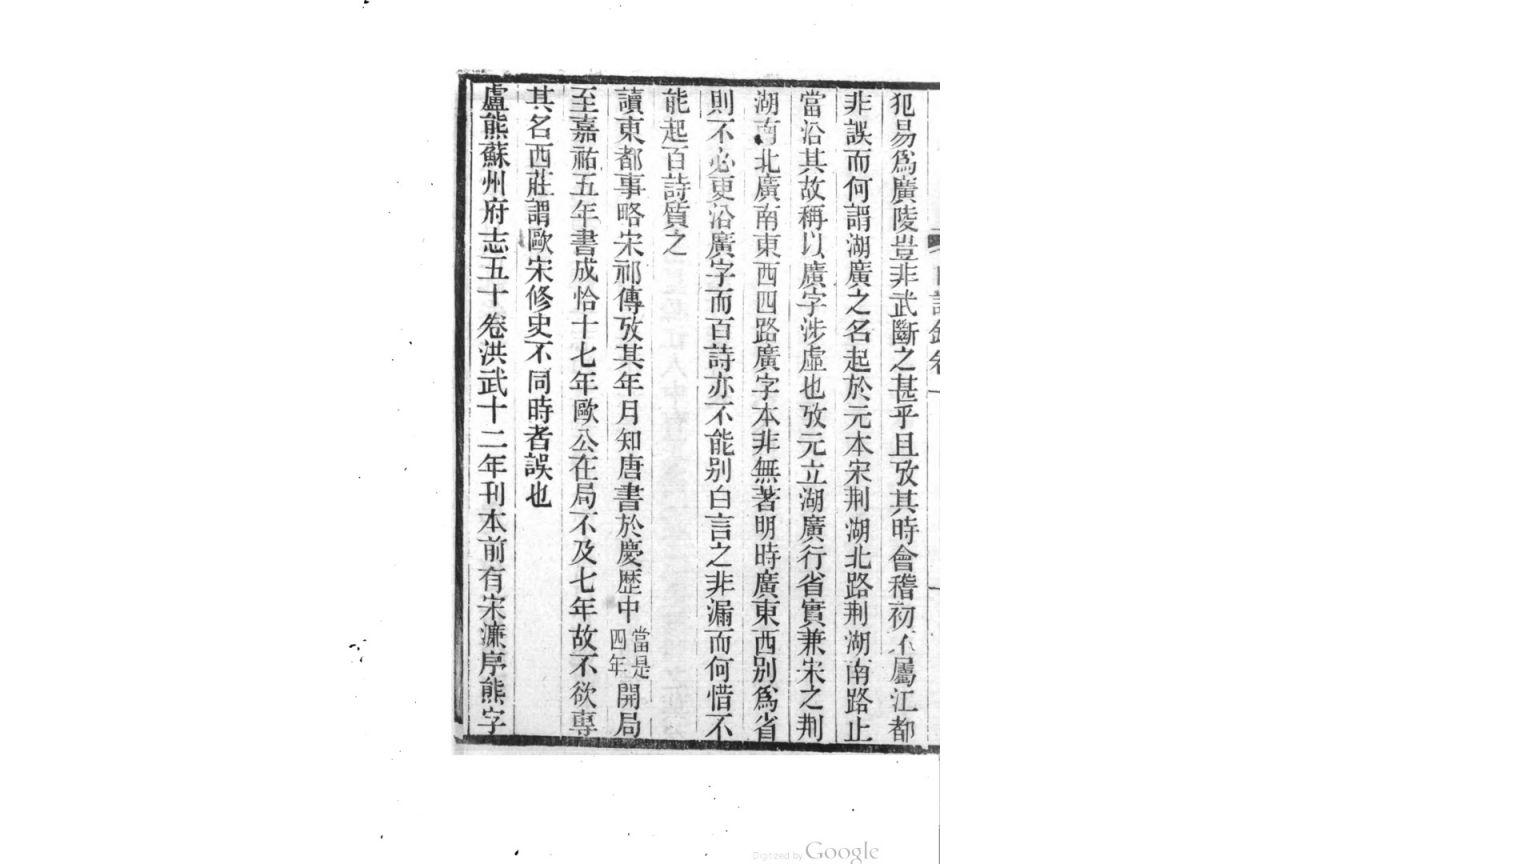 犯易爲廣陵豈非武斷之甚乎且攷其時會稽初不屬江都
非誤而何謂湖廣之名起於元本宋荆湖北路荆湖南路止
當沿其故稱以廣字涉虛也攷元立湖廣行省實兼宋之荆
湖南北廣南東西四路廣字本非無著明時廣東西别爲省
則不必更沿廣字而百詩亦不能别白言之非漏而何惜不
能起百詩質之
讀東都事略宋祁傳攷其年月知唐書於慶歷中當是四年開局
至嘉祐五年書成恰十七年歐公在局不及七年故不欲專
其名西莊謂歐宋修史不同時者誤也
盧熊蘇州府志五十卷洪武十二年刊本前有宋濂序熊字
Digitized by Google